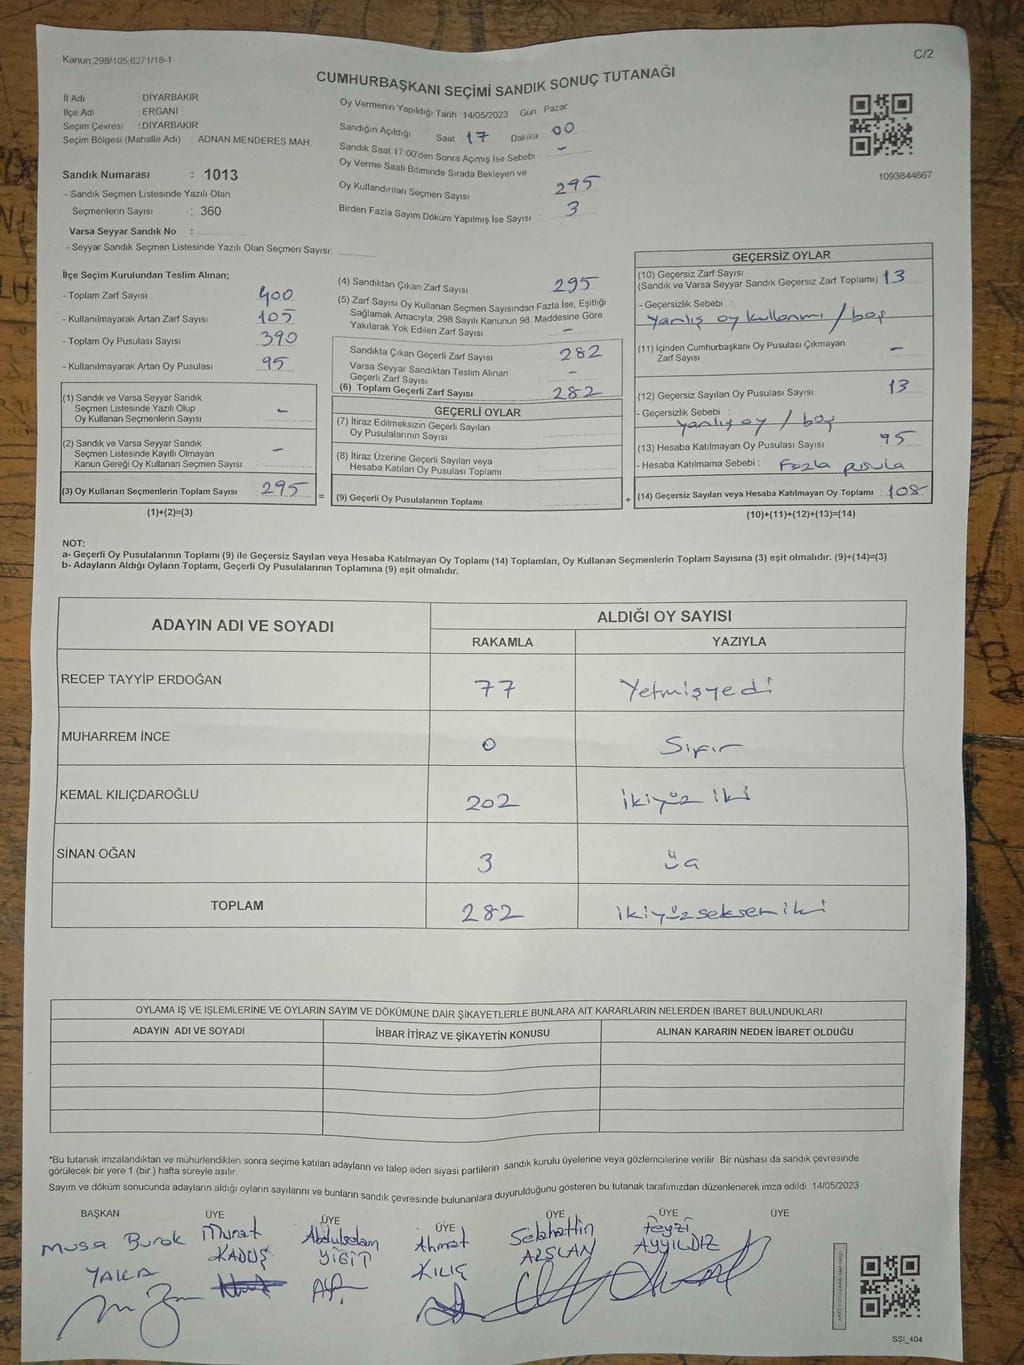 Kanun:298/105;6271/18-1
C/2
CUMHURBAŞKANI SEÇİMİ SANDIK SONUÇ TUTANAĞI
İl Adı : DİYARBAKIR
İlçe Adı : ERGANİ
Seçim Çevresi : DİYARBAKIR
Seçim Bölgesi (Mahalle Adı) : ADNAN MENDERES MAH.
Sandık Numarası : 1013
- Sandık Seçmen Listesinde Yazılı Olan
Seçmenlerin Sayısı : 360
Varsa Seyyar Sandık No :
- Seyyar Sandık Seçmen Listesinde Yazılı Olan Seçmen Sayısı:
Oy Vermenin Yapıldığı Tarih 14/05/2023 Gün Pazar
Sandığın Açıldığı Saat 17 Dakika 00
Sandık Saat 17:00'den Sonra Açımış İse Sebebi : -
Oy Verme Saati Bitiminde Sırada Bekleyen ve
Oy Kullandırılan Seçmen Sayısı 295
Birden Fazla Sayım Döküm Yapılmış İse Sayısı 3
1093844667
İlçe Seçim Kurulundan Teslim Alınan;
- Toplam Zarf Sayısı : 400
- Kullanılmayarak Artan Zarf Sayısı : 105
- Toplam Oy Pusulası Sayısı : 390
- Kullanılmayarak Artan Oy Pusulası : 95
(1) Sandık ve Varsa Seyyar Sandık
Seçmen Listesinde Yazılı Olup
Oy Kullanan Seçmenlerin Sayısı : -
(2) Sandık ve Varsa Seyyar Sandık
Seçmen Listesinde Kayıtlı Olmayan
Kanun Gereği Oy Kullanan Seçmen Sayısı : -
(3) Oy Kullanan Seçmenlerin Toplam Sayısı : 295 =
(1)+(2)=(3)
(4) Sandıktan Çıkan Zarf Sayısı : 295
(5) Zarf Sayısı Oy Kullanan Seçmen Sayısından Fazla İse, Eşitliği
Sağlamak Amacıyla, 298 Sayılı Kanunun 98. Maddesine Göre
Yakılarak Yok Edilen Zarf Sayısı : -
Sandıkta Çıkan Geçerli Zarf Sayısı : 282
Varsa Seyyar Sandıktan Teslim Alınan
Geçerli Zarf Sayısı : -
(6) Toplam Geçerli Zarf Sayısı : 282
GEÇERLİ OYLAR
(7) İtiraz Edilmeksizin Geçerli Sayılan
Oy Pusulalarının Sayısı :
(8) İtiraz Üzerine Geçerli Sayılan veya
Hesaba Katılan Oy Pusulası Toplamı :
(9) Geçerli Oy Pusulalarının Toplamı : +
GEÇERSİZ OYLAR
(10) Geçersiz Zarf Sayısı
(Sandık ve Varsa Seyyar Sandık Geçersiz Zarf Toplamı) 13
- Geçersizlik Sebebi :
Yanlış oy kullanmı / boş
(11) İçinden Cumhurbaşkanı Oy Pusulası Çıkmayan
Zarf Sayısı : -
(12) Geçersiz Sayılan Oy Pusulası Sayısı : 13
- Geçersizlik Sebebi :
yanlış oy / boş
(13) Hesaba Katılmayan Oy Pusulası Sayısı : 95
- Hesaba Katılmama Sebebi : Fazla pusula
(14) Geçersiz Sayılan veya Hesaba Katılmayan Oy Toplamı : 108
(10)+(11)+(12)+(13)=(14)
NOT:
a- Geçerli Oy Pusulalarının Toplamı (9) ile Geçersiz Sayılan veya Hesaba Katılmayan Oy Toplamı (14) Toplamları, Oy Kullanan Seçmenlerin Toplam Sayısına (3) eşit olmalıdır. (9)+(14)=(3)
b- Adayların Aldığı Oyların Toplamı, Geçerli Oy Pusulalarının Toplamına (9) eşit olmalıdır.
ADAYIN ADI VE SOYADI
ALDIĞI OY SAYISI
RAKAMLA YAZIYLA
RECEP TAYYİP ERDOĞAN 77 Yetmişyedi
MUHARREM İNCE 0 Sıfır
KEMAL KILIÇDAROĞLU 202 ikiyüz iki
SİNAN OĞAN 3 üç
TOPLAM 282 ikiyüzseksen iki
OYLAMA İŞ VE İŞLEMLERİNE VE OYLARIN SAYIM VE DÖKÜMÜNE DAİR ŞİKAYETLERLE BUNLARA AİT KARARLARIN NELERDEN İBARET BULUNDUKLARI
ADAYIN ADI VE SOYADI İHBAR İTİRAZ VE ŞİKAYETİN KONUSU ALINAN KARARIN NEDEN İBARET OLDUĞU
*Bu tutanak imzalandıktan ve mühürlendikten sonra seçime katılan adayların ve talep eden siyasi partilerin sandık kurulu üyelerine veya gözlemcilerine verilir. Bir nüshası da sandık çevresinde
görülecek bir yere 1 (bir) hafta süreyle asılır.
Sayım ve döküm sonucunda adayların aldığı oyların sayılarını ve bunların sandık çevresinde bulunanlara duyurulduğunu gösteren bu tutanak tarafımızdan düzenlenerek imza edildi. 14/05/2023
BAŞKAN ÜYE ÜYE ÜYE ÜYE ÜYE ÜYE
Musa Burak Murat Abdulselam Ahmet Selahattin Feyzi
YAKA KADUŞ YİĞİT KILIÇ ALSLAN AYYILDIZ
SSI_404